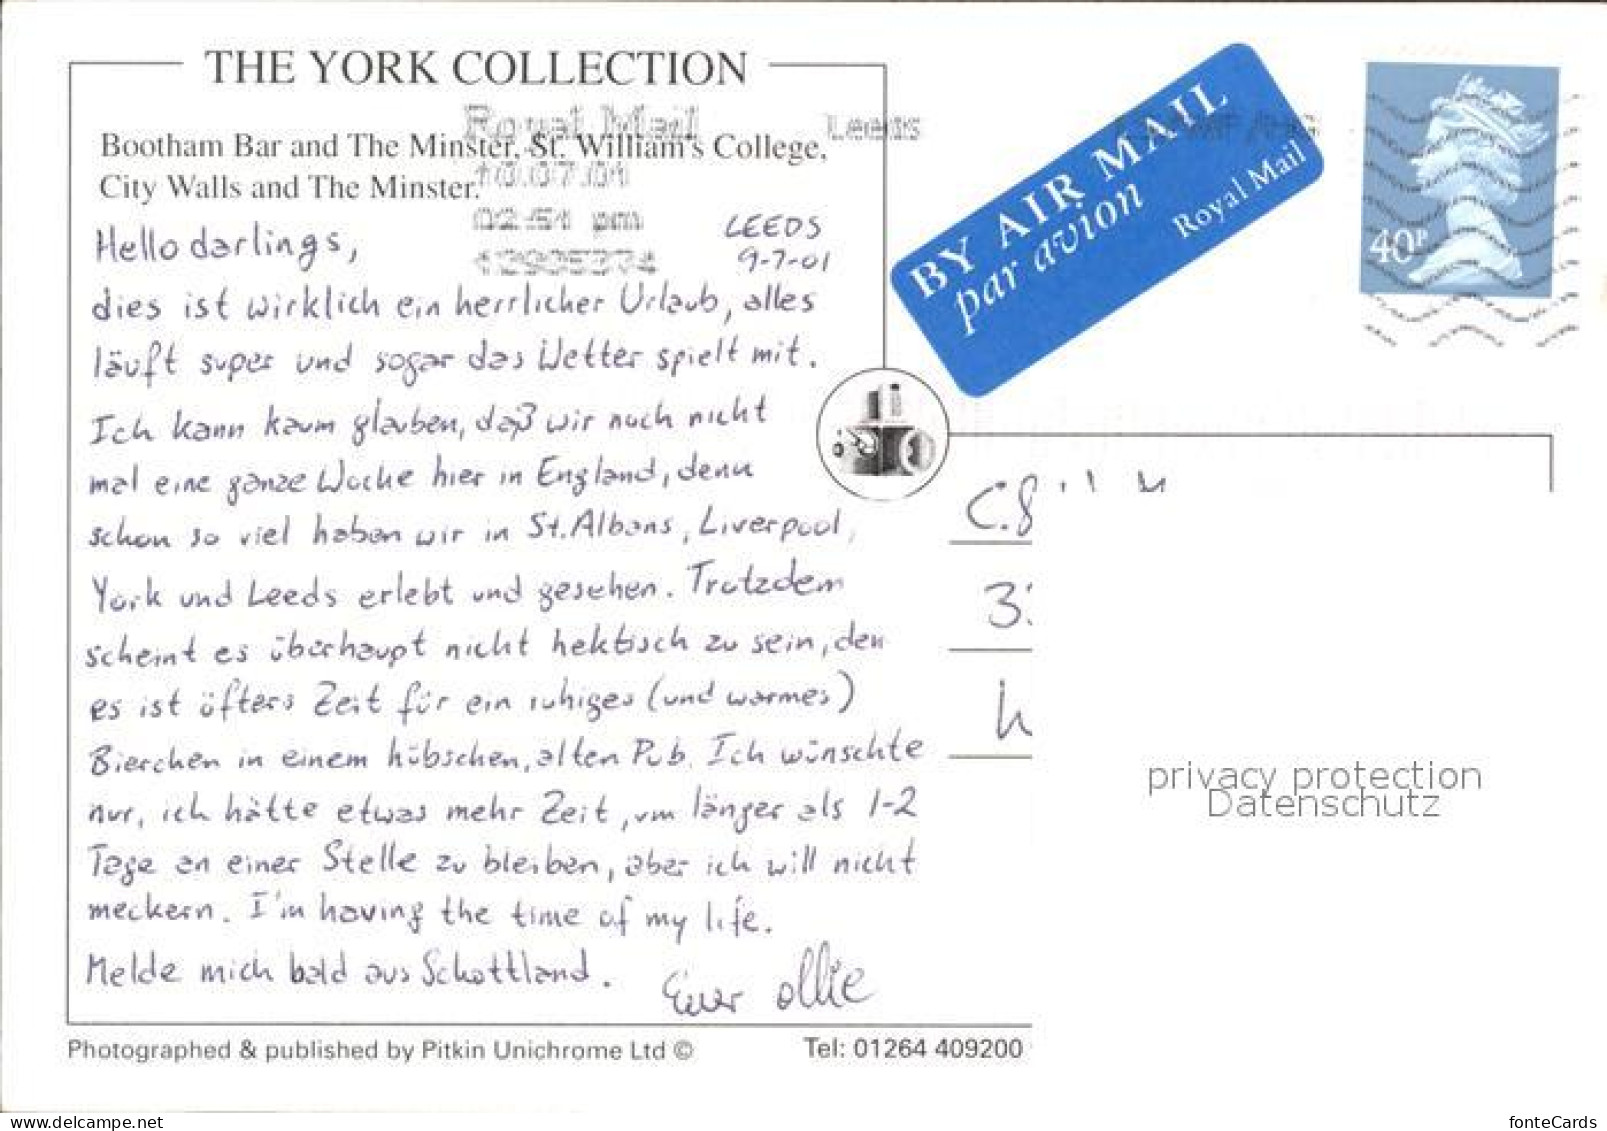 THE YORK COLLECTION
Bootham Bar and The Minster, St. William's College,
City Walls and The Minster.
Royal Mail
Leeds
10.07.01
02:51 pm
BY AIR MAIL
par avion
Royal Mail
40P
LEEDS
9-7-01
Hello darlings,
dies ist wirklich ein herrlicher Urlaub, alles
läuft super und sogar das Wetter spielt mit.
Ich kann kaum glauben, daß wir noch nicht
mal eine ganze Woche hier in England, denn
schon so viel haben wir in St. Albans, Liverpool,
York und Leeds erlebt und gesehen. Trotzdem
scheint es überhaupt nicht hektisch zu sein, den
es ist öfters Zeit für ein ruhiges (und warmes)
Bierchen in einem hübschen, alten Pub. Ich wünschte
nur, ich hätte etwas mehr Zeit, um länger als 1-2
Tage an einer Stelle zu bleiben, aber ich will nicht
meckern. I'm having the time of my life.
Melde mich bald aus Schottland.
Euer Ollie
C.
3
privacy protection
Datenschutz
Photographed & published by Pitkin Unichrome Ltd ©
Tel: 01264 409200
www.delcampe.net
fonteCards